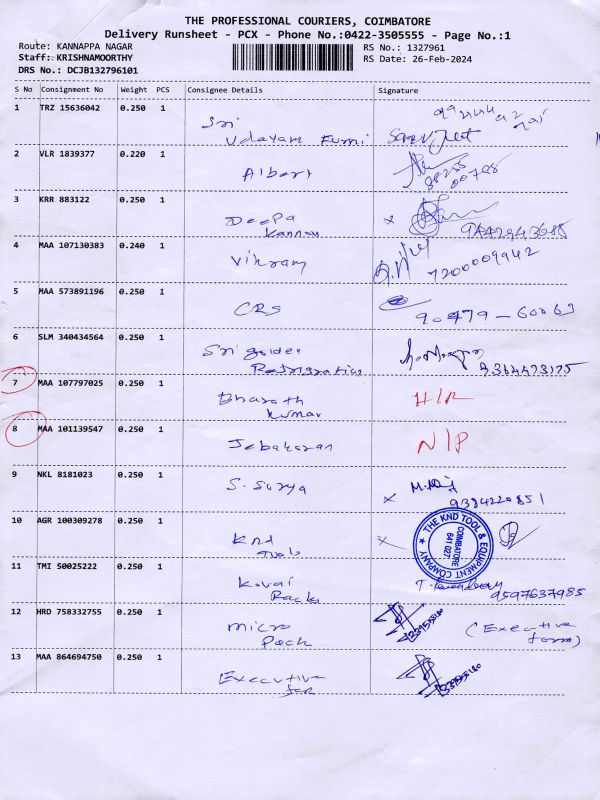 THE PROFESSIONAL COURIERS, COIMBATORE
Delivery Runsheet - PCX - Phone No.:0422-3505555 - Page No.:1
Route: KANNAPPA NAGAR RS No.: 1327961
Staff: KRISHNAMOORTHY RS Date: 26-Feb-2024
DRS No.: DCJB132796101
S No Consignment No Weight PCS Consignee Details Signature
1 TRZ 15636042 0.250 1 Sri
Udayam
2 VLR 1839377 0.220 1 Albert
3 KRR 883122 0.250 1 Deepa
Kannan
4 MAA 107130383 0.240 1 Vikram 7200009942
5 MAA 573891196 0.250 1 CRS 90479-60063
6 SLM 340434564 0.250 1 Sri golden
7 MAA 107797025 0.250 1 Bharath H/R
kumar
8 MAA 101139547 0.250 1 Jebakaran N/P
9 NKL 8181023 0.250 1 S. Surya
9394220851
10 AGR 100309278 0.250 1 Knd
Tools
THE KND TOOL & EQUIPMENT COMPANY
COIMBATORE
641 027.
11 TMI 50025222 0.250 1 Kovai
Racks 9597637985
12 HRD 758332755 0.250 1 micro
Pack (Executive
13 MAA 864694750 0.250 1 Executive